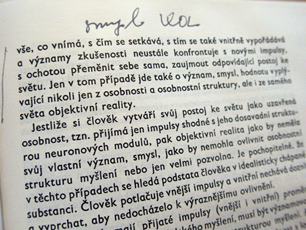 smysl
vše, co vnímá, s čím se setkává, s tím se také vnitřně vypořádává
a významy zkušenosti neustále konfrontuje s novými impulsy,
s ochotou přeměnit sebe sama, zaujmout odpovídající postoj ke
světu. Jen v tom případě jde také o význam, smysl, hodnotu vyplý-
vající nikoli jen z osobnosti a osobnostní struktury, ale i ze samého
světa objektivní reality.
Jestliže si člověk vytváří svůj postoj ke světu jako uzavřená
osobnost, tzn. přijímá jen impulsy shodné s jeho dosavadní struktu-
rou neuronových modulů, pak objektivní realita jako by neměla
svůj vlastní význam, smysl, jako by nemohla ovlivnit osobnostní
strukturu myšlení nebo jen velmi pozvolna. Je pochopitelné, že
v těchto případech se hledá podstata člověka v idealisticky chápané
substanci. Člověk potlačuje vnější impulsy a vnitřní nechává dozrát
a vyprchat, aby nedocházelo k výraznějšímu ovlivnění.
mají přijaté impulsy (vnější i vnitřní)
myšlení, musí být význam